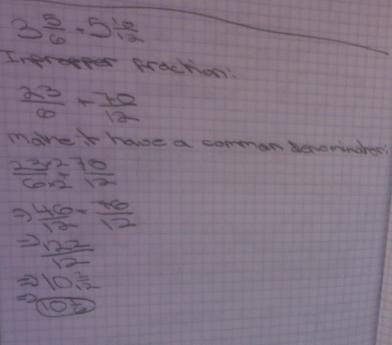 3 5/6 + 5 10/12
Impropper fraction:
23/6 + 70/12
make it have a common denominator:
23×2/6×2 70/12
⇒ 46/12 + 76/12
⇒ 122/12
⇒ 10 2/12
⇒ 10 1/6